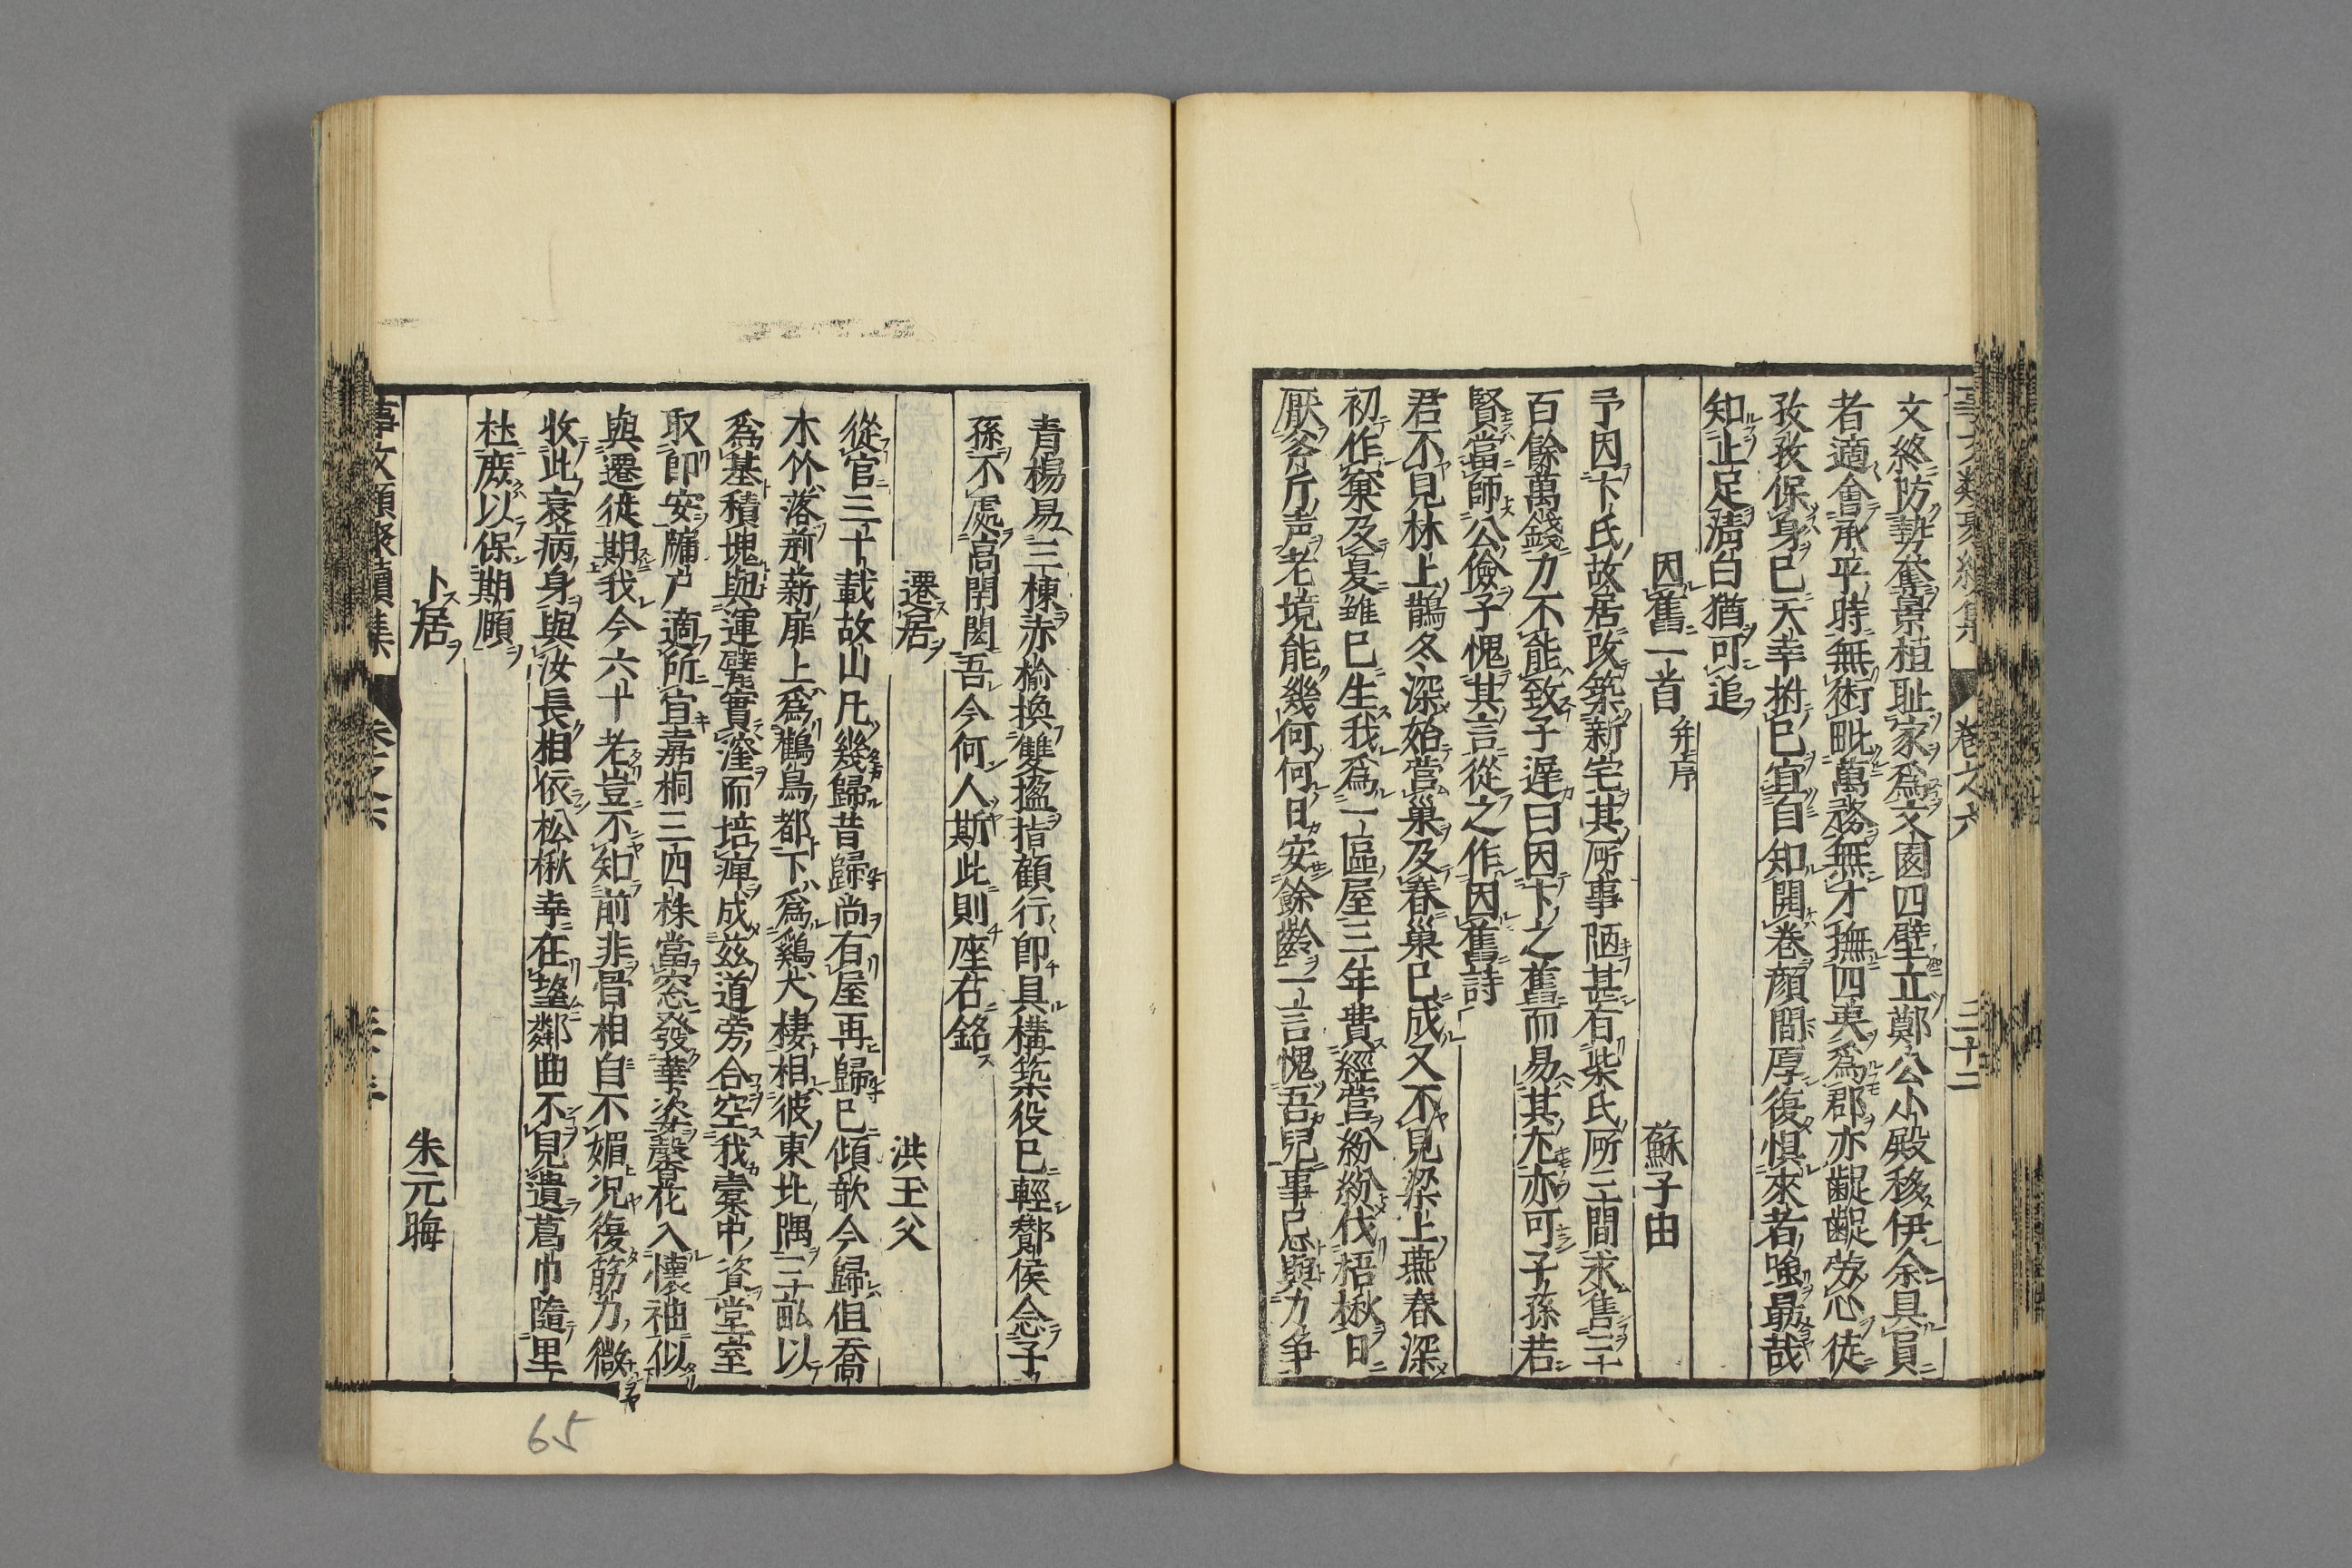 文終防勢奪景植耻家爲文園四壁立鄭公小殿移伊余具員
者適會承平時無術毗萬務無才撫四夷爲郡亦齪齪勞心徒
孜孜保身已天幸拊已宜自知開卷顏間厚復惧來者強最哉
知止足淸白猶可追
因舊一首 并序 蘇子由
予因卞氏故居改築新宅其所事陋甚有柴氏所三間求售三十
百餘萬錢力不能致子遲曰因卞之舊而易其尤亦可子孫若
賢當師公儉予愧其言從之作因舊詩
君不見林上鵲冬深始營巢及春巢已成又不見梁上燕春深
初作窠及夏雏已生我爲一區屋三年費經營紛紛伐梧楸日
厭斧斤声老境能幾何何日安餘齡一言愧吾兒事忌與力争
青楊易三棟赤榆換雙楹指顧行即具構築役已輕鄼侯念子
孫不處高閈閎吾今何人斯此則座右銘
遷居 洪玉父
從官三十載故山凡幾歸昔歸尚有屋再歸已傾欹今歸但喬
木竹落荊薪扉上爲鸛鳥都下爲鷄犬棲相彼東北隅三十畝以
爲基積塊與運甓實窪而培痺成玆道旁合空我橐中資堂室
取即安牖户適所宜嘉桐三四株當窓發華姿馨香花入懷袖似
與遷徙期我今六十老豈不知前非骨相自不媚况復筋力微
收此衰病身與汝長相依松楸幸在望鄰曲不見遺葛巾隨里
社庻以保期頤
卜居 朱元晦
事文類聚續集 卷之六 三十二